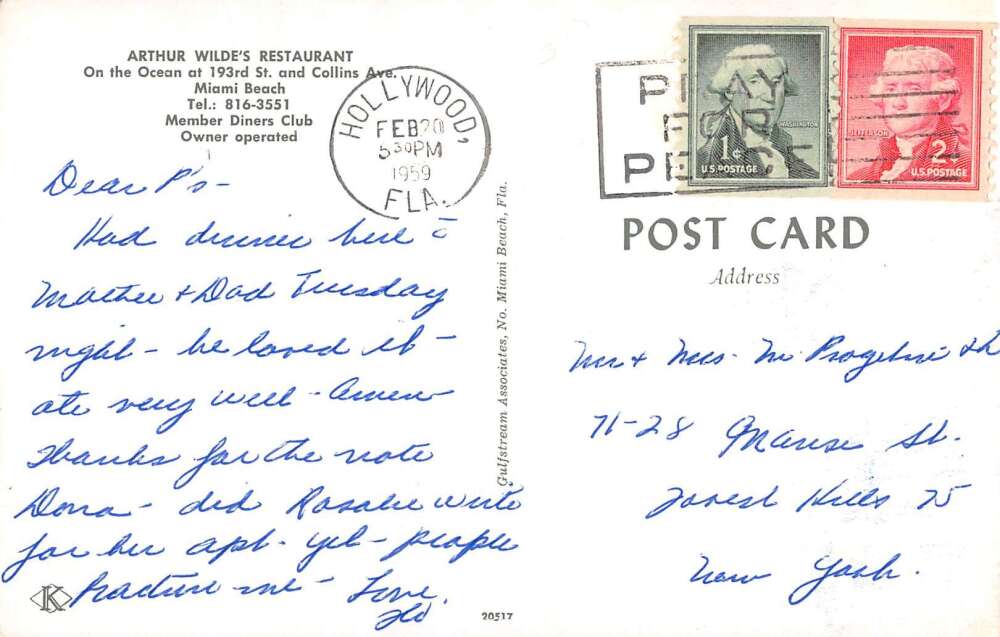 ARTHUR WILDE'S RESTAURANT
On the Ocean at 193rd St. and Collins Ave.
Miami Beach
Tel.: 816-3551
Member Diners Club
Owner operated
HOLLYWOOD,
FEB 20
5 30 PM
1959
FLA.
Dear P's-
Had dinner here c̄
Mother + Dad Tuesday
night - he loved it -
ate very well - Amen
Thanks for the note
Dona - did Rosalie write
for her apt - yet - people
fracture me - Love.
Flo
K
20517
Gulfstream Associates, No. Miami Beach, Fla.
PRAY
FOR
PEACE
WASHINGTON
1¢
U.S. POSTAGE
JEFFERSON
2¢
U.S. POSTAGE
POST CARD
Address
Mr + Mrs. M
71-28 St.
Forest Hills 75
New York.